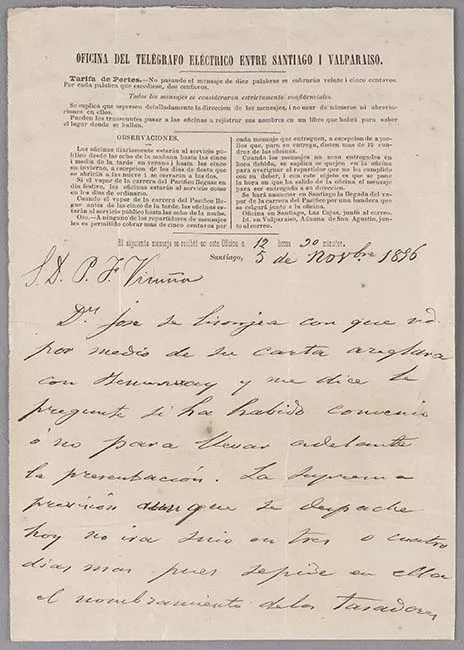 OFICINA DEL TELÉGRAFO ELÉCTRICO ENTRE SANTIAGO I VALPARAISO.
Tarifa de Portes.—No pasando el mensaje de diez palabras se cobrarán veinte i cinco centavos.
Por cada palabra que escediese, dos centavos.
Todos los mensajes se considerarán estrictamente confidenciales.
Se suplica que espresen detalladamente la direccion de los mensajes, i no usar de números ni abrevia-
ciones en ellos.
Pueden los transeuntes pasar a las oficinas a registrar sus nombres en un libro que habrá para saber
el lugar donde se hallan.
OBSERVACIONES.
Las oficinas diariamente estarán al servicio
público desde las ocho de la mañana hasta las cinco
i media de la tarde en verano; i hasta las cinco
en invierno, a escepcion de los dias de fiesta que
se abrirán a las nueve i se cerrarán a las dos.
Si el vapor de la carrera del Pacífico llegase en
dia festivo, las oficinas estarán al servicio como
en los dias de ordinario.
Cuando el vapor de la carrera del Pacífico lle-
gue antes de las cinco de la tarde, las oficinas es-
tarán al servicio público hasta las ocho de la noche.
Ojo.—A ninguno de los repartidores de mensajes
les es permitido cobrar mas de cinco centavos por
cada mensaje que entreguen, a escepcion de a que-
llos que, para su entrega, disten mas de 12 cua-
dras de las oficinas.
Cuando los mensajes no sean entregados en
hora debida, se suplica se quejen en la oficina
para averiguar el repartidor que no ha cumplido
con su deber, i con este objeto es que se pone
la hora en que ha salido de la oficina el mensaje
para ser entregado a su direccion.
Se hará anunciar en Santiago la llegada del va-
por de la carrera del Pacífico por una bandera que
se colgará junto a la oficina.
Oficina en Santiago, Las Cajas, junto al correo.
Id. en Valparaiso, Aduana de San Agustin, jun-
to al correo.
El siguiente mensaje se recibió en esta Oficina a 12 horas 20 minutos.
Santiago, 5 de Novbre 1856
S. D. P. F. Vicuña
Dn Jose se lisonjea con que vd.
por medio de su carta areglara
con y me dice le
pregunte si ha habido convenio
ó no para llevar adelante
la presentación. La suprema
provisión aunque se despache
hoy no ira sino en tres o cuatro
días mas pues se pide en ella
el nombramiento de los tasadores